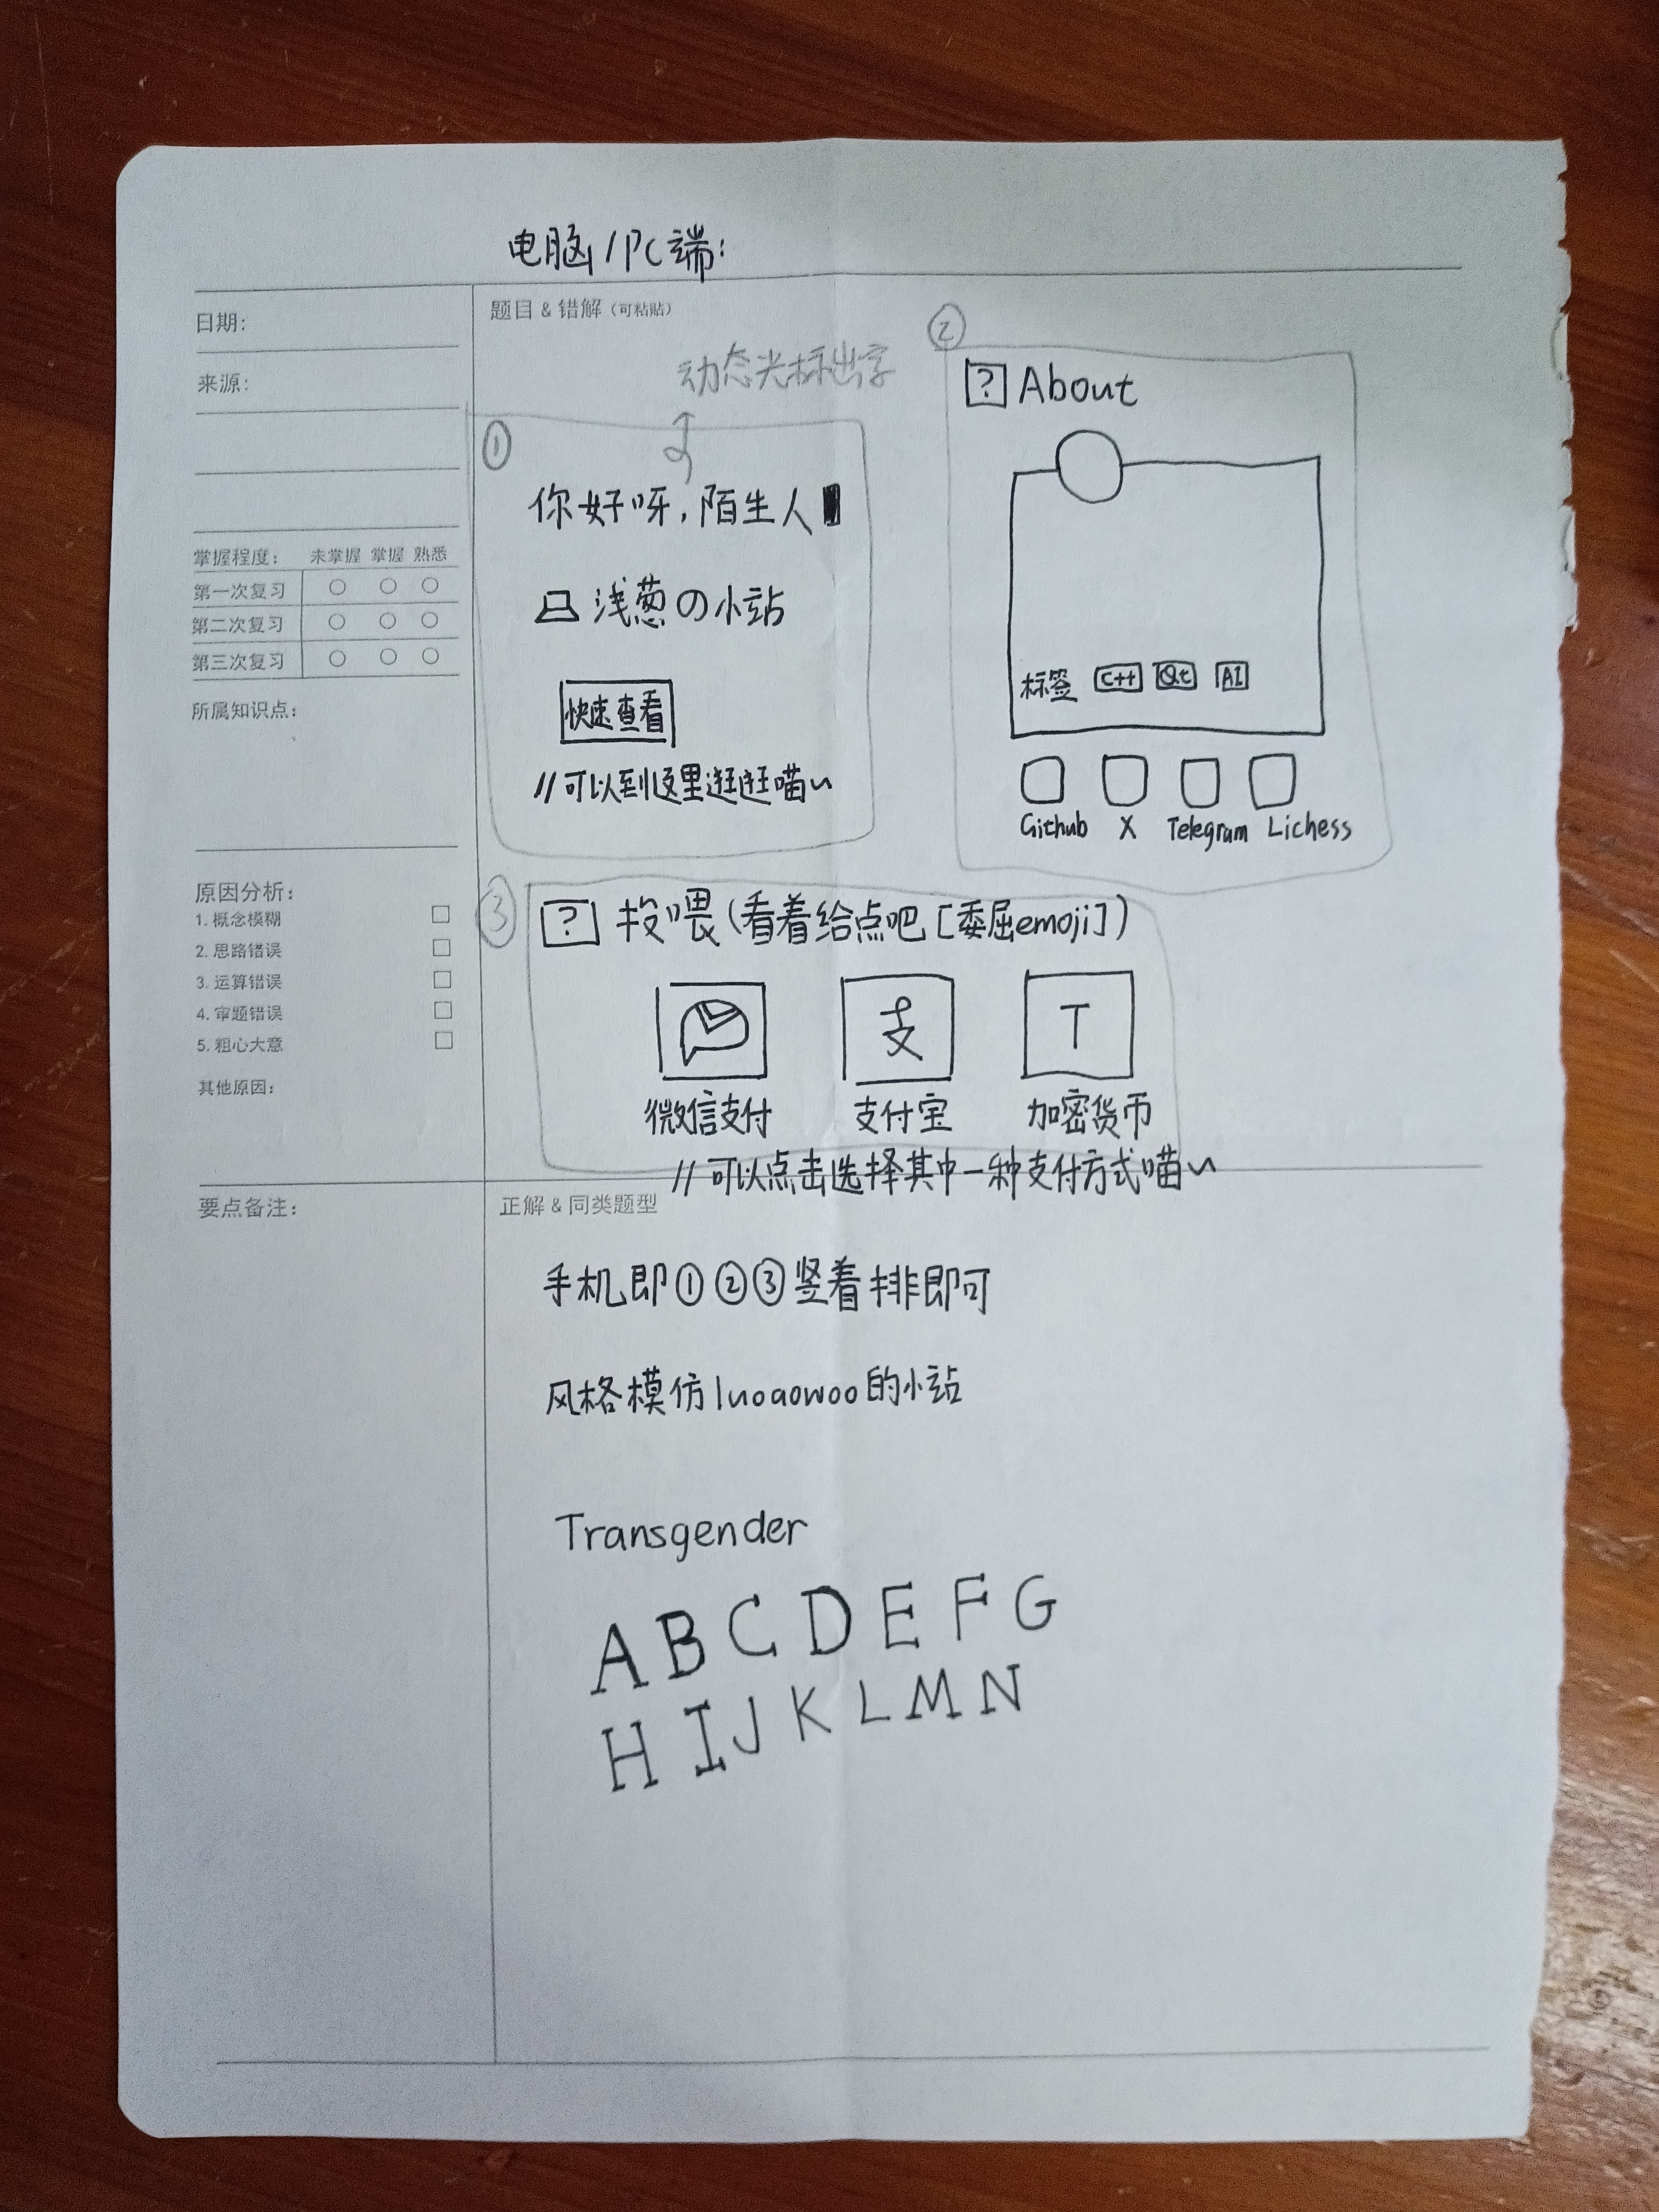 电脑/PC端:
日期:
来源:
掌握程度: 未掌握 掌握 熟悉
第一次复习
第二次复习
第三次复习
所属知识点:
原因分析:
1. 概念模糊
2. 思路错误
3. 运算错误
4. 审题错误
5. 粗心大意
其他原因:
题目 & 错解 (可粘贴)
动态光标出字
①
你好呀,陌生人
浅葱の小站
快速查看
//可以到这里逛逛喵~
②
? About
标签 C++ Qt AI
Github X Telegram Lichess
③
? 投喂(看着给点吧[委屈emoji])
支 T
微信支付 支付宝 加密货币
//可以点击选择其中一种支付方式喵~
要点备注:
正解 & 同类题型
手机即①②③竖着排即可
风格模仿luoaowoo的小站
Transgender
A B C D E F G
H I J K L M N